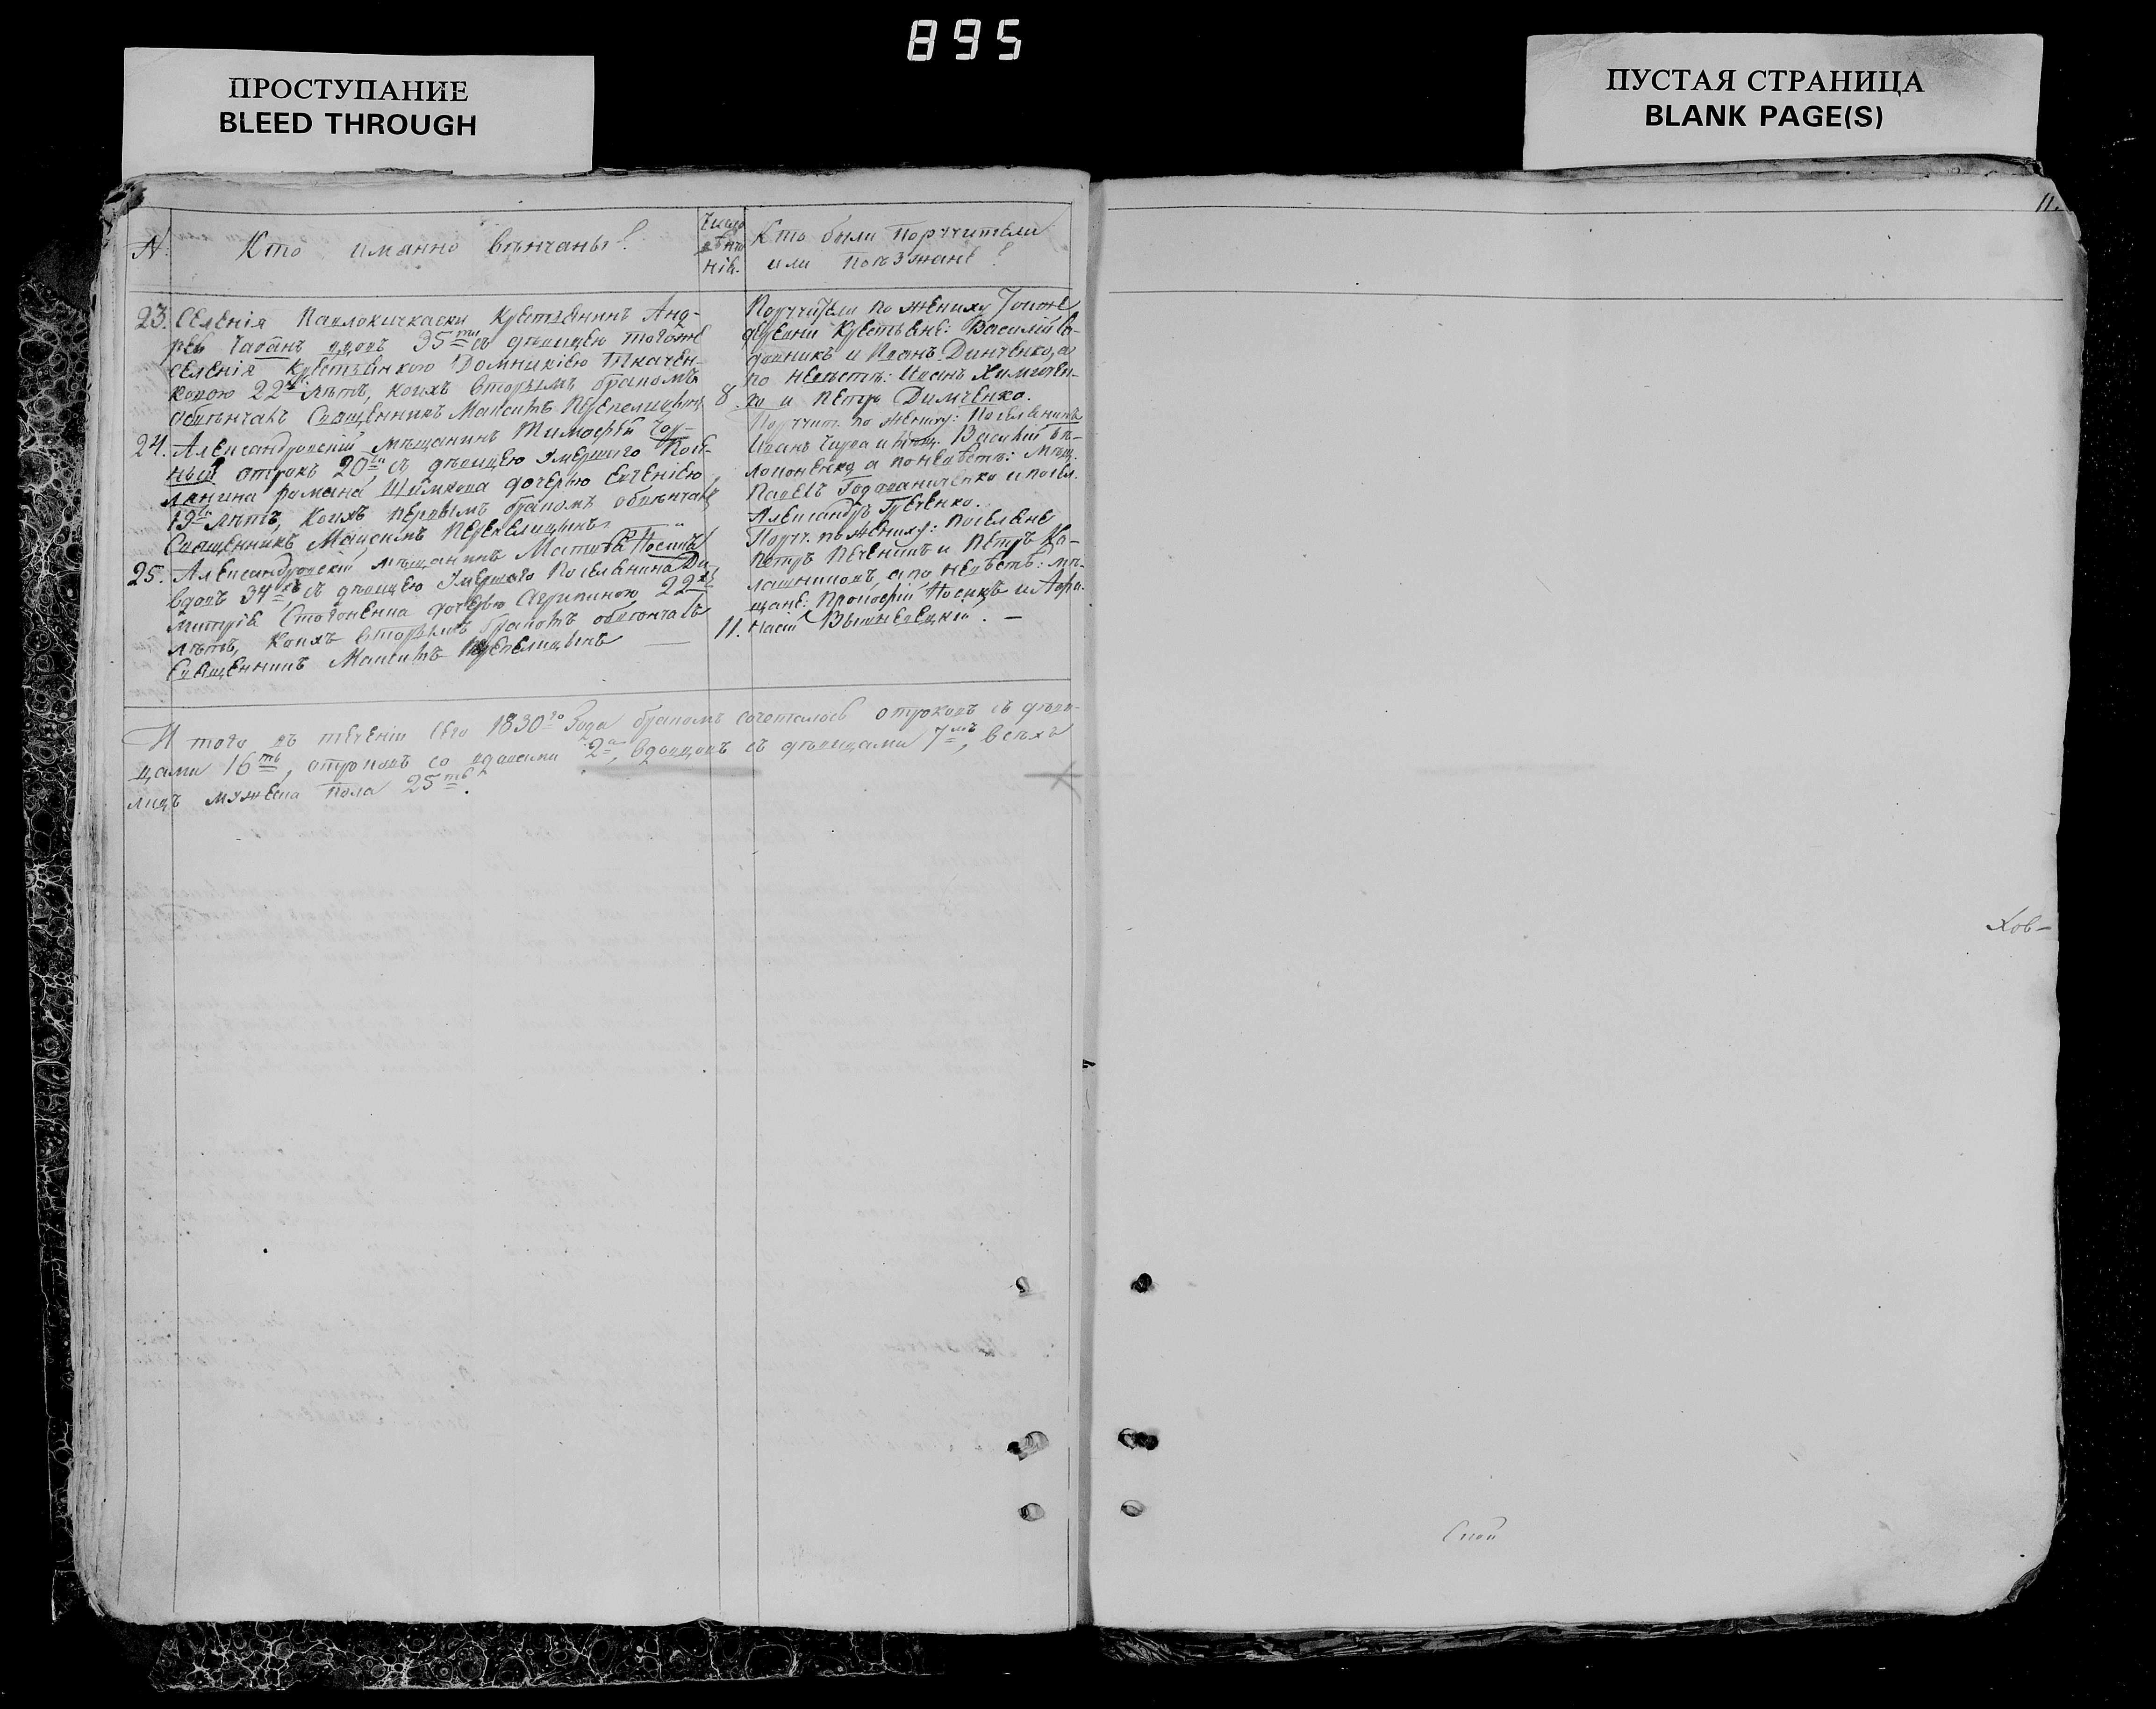 895
ПРОСТУПАНИЕ
BLEED THROUGH
ПУСТАЯ СТРАНИЦА
BLANK PAGE(S)
11.
№
Кто имянно вѣнчаны?
Число
вѣнча
нiя.
Кто были поручители
или поѣзжане?
23. Селенія Павлокичкаски крестьянинъ Анд-
рей Чабанъ вдовъ 35ти съ дѣвицею тогоже
селенія крестьянкою Домникіею Ткачен-
ковою 22хъ лѣтъ, коихъ вторымъ бракомъ
обвѣнчалъ Священникъ Максимъ Перепелицынъ
8.
Поручители по жениху тоиже
деревни крестьяне: Василій Са-
довникъ и Иванъ Динченко, а
по невѣстѣ: Иванъ Химичен-
ко и Петръ Димченко.
24. Александровскій мѣщанинъ Тимофѣй Чор-
ный отрокъ 20ти съ дѣвицею умершаго Посе-
лянина Романа Шимкова дочерью Евгеніею
19ти лѣтъ, коихъ первымъ бракомъ обвѣнчалъ
Священникъ Максимъ Перепелицынъ
Поручит. по жениху: поселянинъ
Иванъ Чирва и мѣщ. Василій
а по невѣстѣ: мѣщ.
Павелъ и посел.
Александръ Греченко.
25. Александровскій мѣщанинъ Матвѣй Носикъ
вдовъ 34хъ съ дѣвицею умершаго Поселянина Ди-
митрія Стогоненка дочерью Агрипиною 22хъ
лѣтъ, коихъ вторымъ бракомъ обвѣнчалъ
Священникъ Максимъ Перепелицынъ
11.
Поруч. по жениху: поселяне
Петръ Печеникъ и Петръ Ка-
лашниковъ, а по невѣстѣ: мѣ-
щане: Прокофій Носикъ и Афа-
насій Вишневецкій. —
Итого въ теченіи сего 1830го года бракомъ сочеталось отроковъ съ дѣви-
цами 16ть, отроковъ со вдовами 2а, вдовцовъ съ дѣвицами 7мъ, всѣхъ
лицъ мужеска пола 25ть.
Хов-